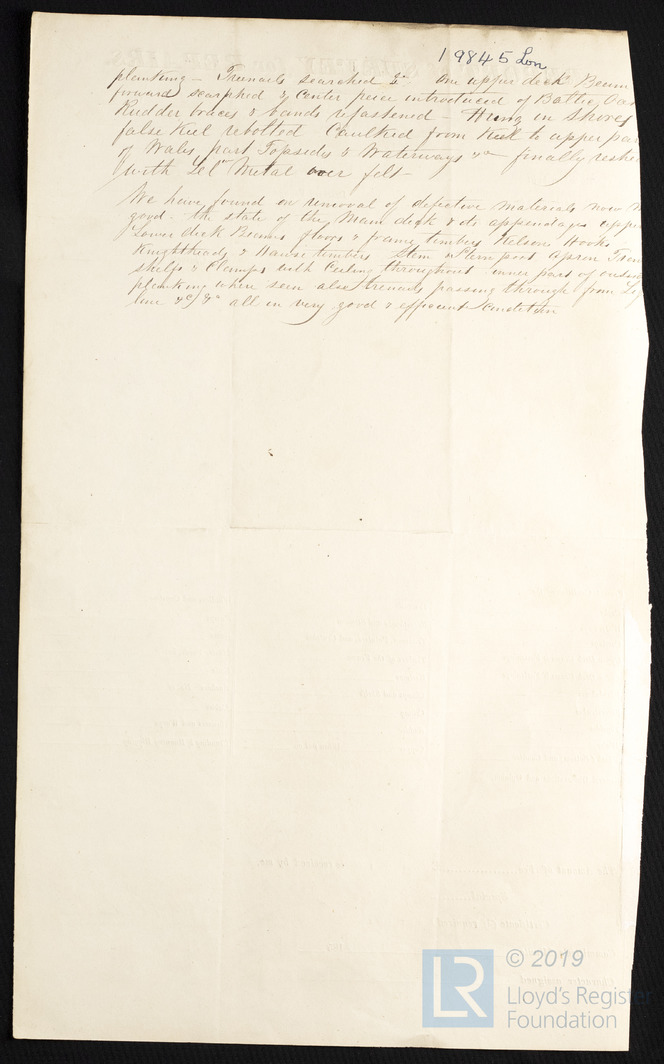 19845 Lon
planking - Treenails searched &c One upper deck Beam
forward scarphed & Center peice introduced of Baltic Oa
Rudder braces & bands refastened - Hung in Shores
false Keel rebolted Caulked from Keel to upper par
of Wales, part Topsides & Waterways &c - finally reshe
with Yel Metal over felt -
We have found on removal of defective materials now
good - the state of the Main deck & its appendages uppe
Lower deck Beams floors & frame timbers Kelson Hooks
Knightheads & Hawse timbers Stem Sternpost apron
shelfs & Clamps with Ceiling throughout inner part of
planking where seen also treenails passing through from
line &c &c all in very good & efficient Condition
© 2019
LR
Lloyd's Register
Foundation